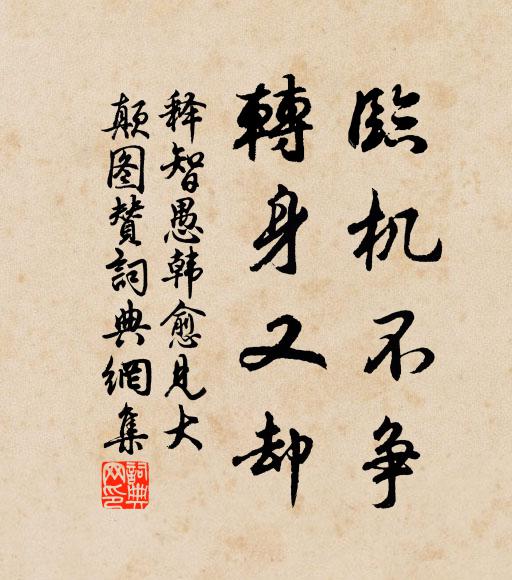 臨机不争
轉身又却
释智愚韩愈见大
颠图赞詞典網集
詞典
网印